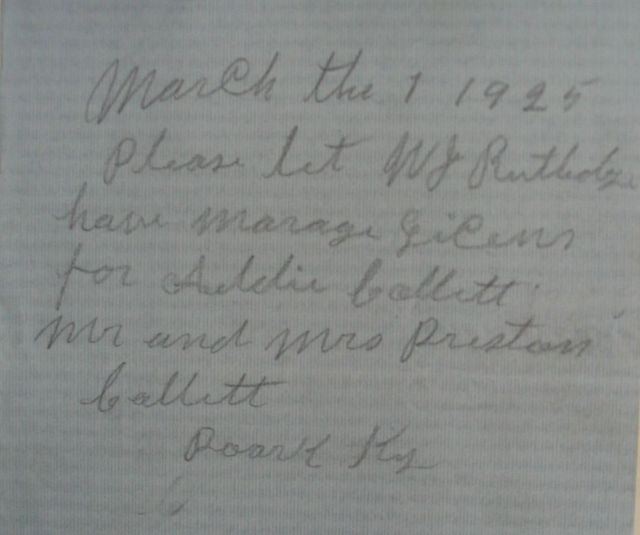 March the 1 1925
Please let WJ Rutledge
have marage licens
for Addie Collett
Mr and Mrs Preston
Collett
Roark Ky